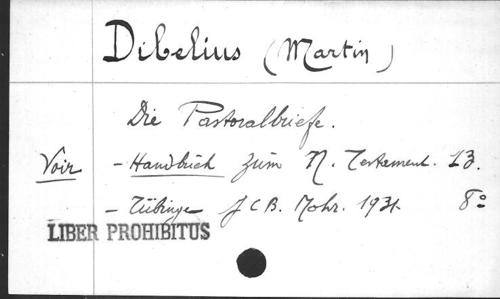 Dibelius (Martin)
Die Pastoralbriefe.
Voir - Handbuch zum N. Testament. 13.
- Tübingen J C B. Mohr. 1931. 8°
LIBER PROHIBITUS